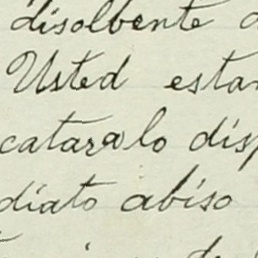 disolbente
Usted esta
catara lo dis
diato abiso